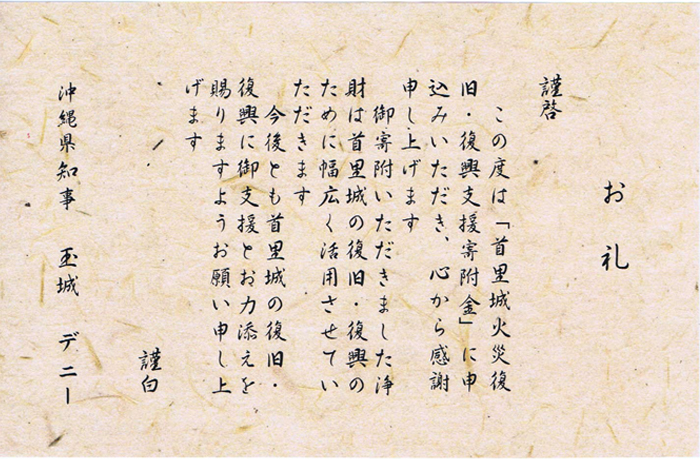 お礼
謹啓
この度は「首里城火災復
旧・復興支援寄附金」に申
込みいただき、心から感謝
申し上げます
御寄附いただきました浄
財は首里城の復旧・復興の
ために幅広く活用させてい
ただきます
今後とも首里城の復旧・
復興に御支援とお力添えを
賜りますようお願い申し上
げます
謹白
沖縄県知事 玉城 デニー